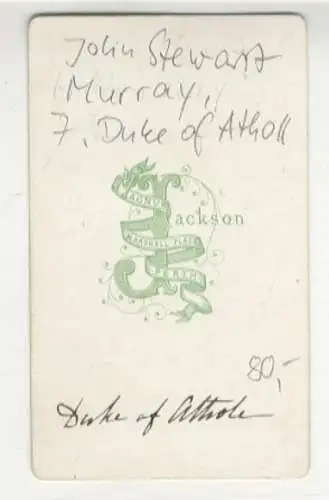 John Stewart
Murray,
7. Duke of Atholl
MAGNUS
Jackson
MARSHALL PLACE
PERTH
80,-
Duke of Athole